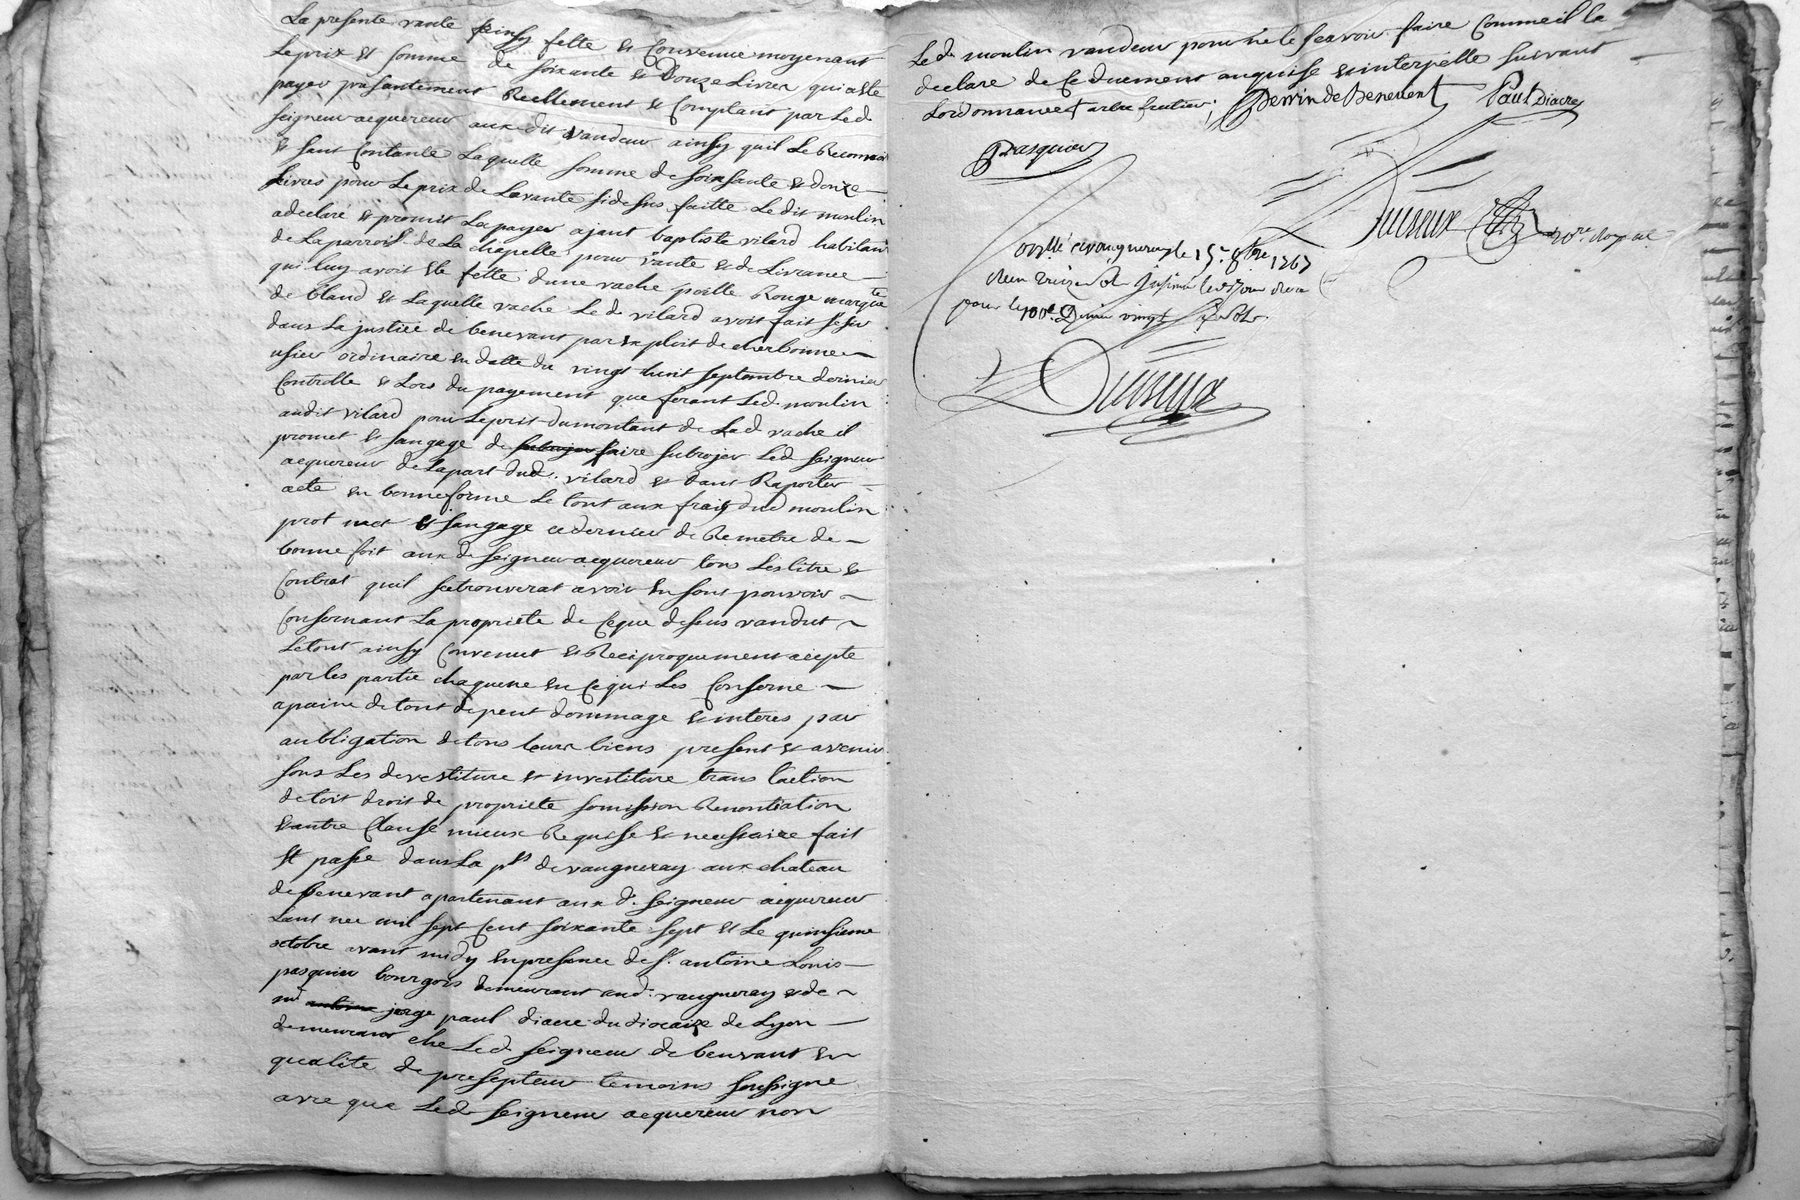 La presente vante ainsy fette et Convenue moyenant
Le prix et somme de soixante et Douze Livres qui a ete
payer presantement Reellement et Comptant par Led
seigneur acquereur aux dit vandeur ainsy quil Le Reconnoi
et sant Contante Laquelle somme de soixsante et douze
Livres pour Le prix de La vante sidesus faitte Le dit moulin
a declaré et promit La payer a jant baptiste vilard habitant
de La parroiss de La chapelle pour vante et de Livrance
qui luy avoit ete fette dune vache poille Rouge marqte
de bland et Laquelle vache Le d vilard avoit fait sesir
dans La justice de benevant par exploit de cherbonne
usier ordinaire en datte du vingt huit septembre dernier
Controlle et Lors du payement que ferant Led moulin
audit vilard pour Le prit du montant de Lad vache il
promet et sangage de faire subrojer Led seigneur
acquereur de La part dud. vilard et dant Raporter
acte en bonne forme Le tout aux fraig dud moulin
prot met et sangage ce dernier de Remetre de
bonne foit aux d seigneur acquereur tous Les litre et
Contrat quil se trouverat avoir en sont pouvoir
Consernant La propriete de Ce que desus vandut
Le tout ainsy Convenut et Reciproquement acepte
par les partie chaquene en Ce qui Les Conserne
a paine de tout depent dommage et interes par
aubligation de tous leurs biens present et avenir
sous Les devestiture et investiture trans laction
de toit droit de propriete somission Renontiation
et autre Clause mieux Requise et necessaire fait
et passe dans La pss de vaugneray aux chateau
de benevant apartenant aux d. seigneur acquereur
Lant nee mil sept Cent soixante sept et Le quinsieme
octobre avant midy en presence de sr. antoine Louis
pasquier bourgois demeurant aud. vaugneray et de
mr jorge paul diacre du diocaize de Lyon
demeurant che Led seigneur de benvant en
qualite de presepteur temoins soussigne
avre que Led seigneur acquereur non
Led moulin vandeur pour ne le scavoir faire Comme il la
declare de Ce duement anquise et interpelle suivant
Lordonnance arbre frutier; Perrin de Benevent Paul Diacre
Pasquier
Dutreux nore Royal
Conllé a vaugneray le 15e 8bre 1767